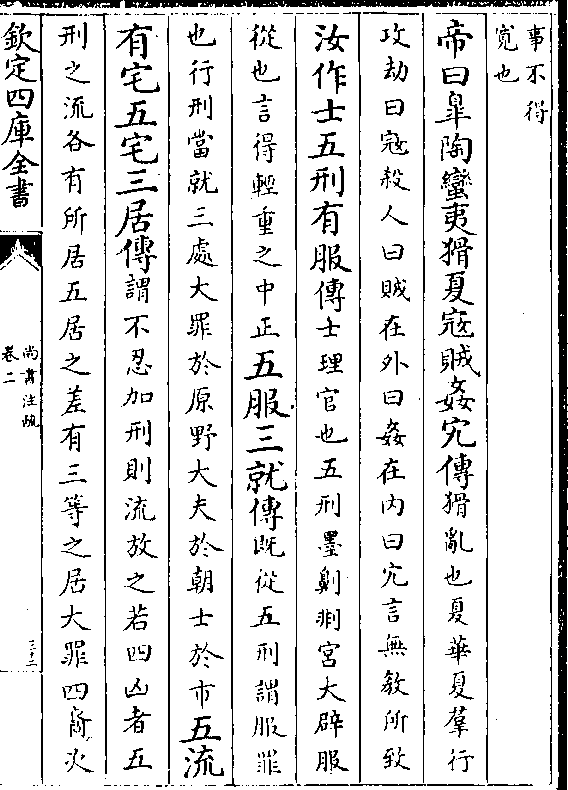 事不得
寛也
帝曰臯陶蠻夷猾夏寇賊姦宄傳猾亂也夏華夏羣行
攻劫曰寇殺人曰賊在外曰姦在内曰宄言無教所致
汝作士五刑有服傳士理官也五刑墨劓剕宮大辟服
從也言得輕重之中正五服三就傳既從五刑謂服罪
也行刑當就三處大罪於原野大夫於朝士於市五流
有宅五宅三居傳謂不忍加刑則流放之若四凶者五
刑之流各有所居五居之差有三等之居大罪四裔次
欽定四庫全書
尚書注疏
卷二